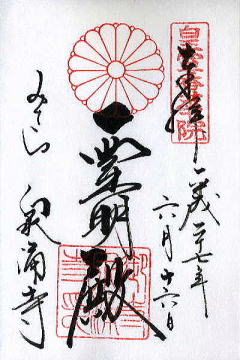 皇室香華院
奉拝
平成二十七年
六月十六日
霊明殿
みてら 泉涌寺